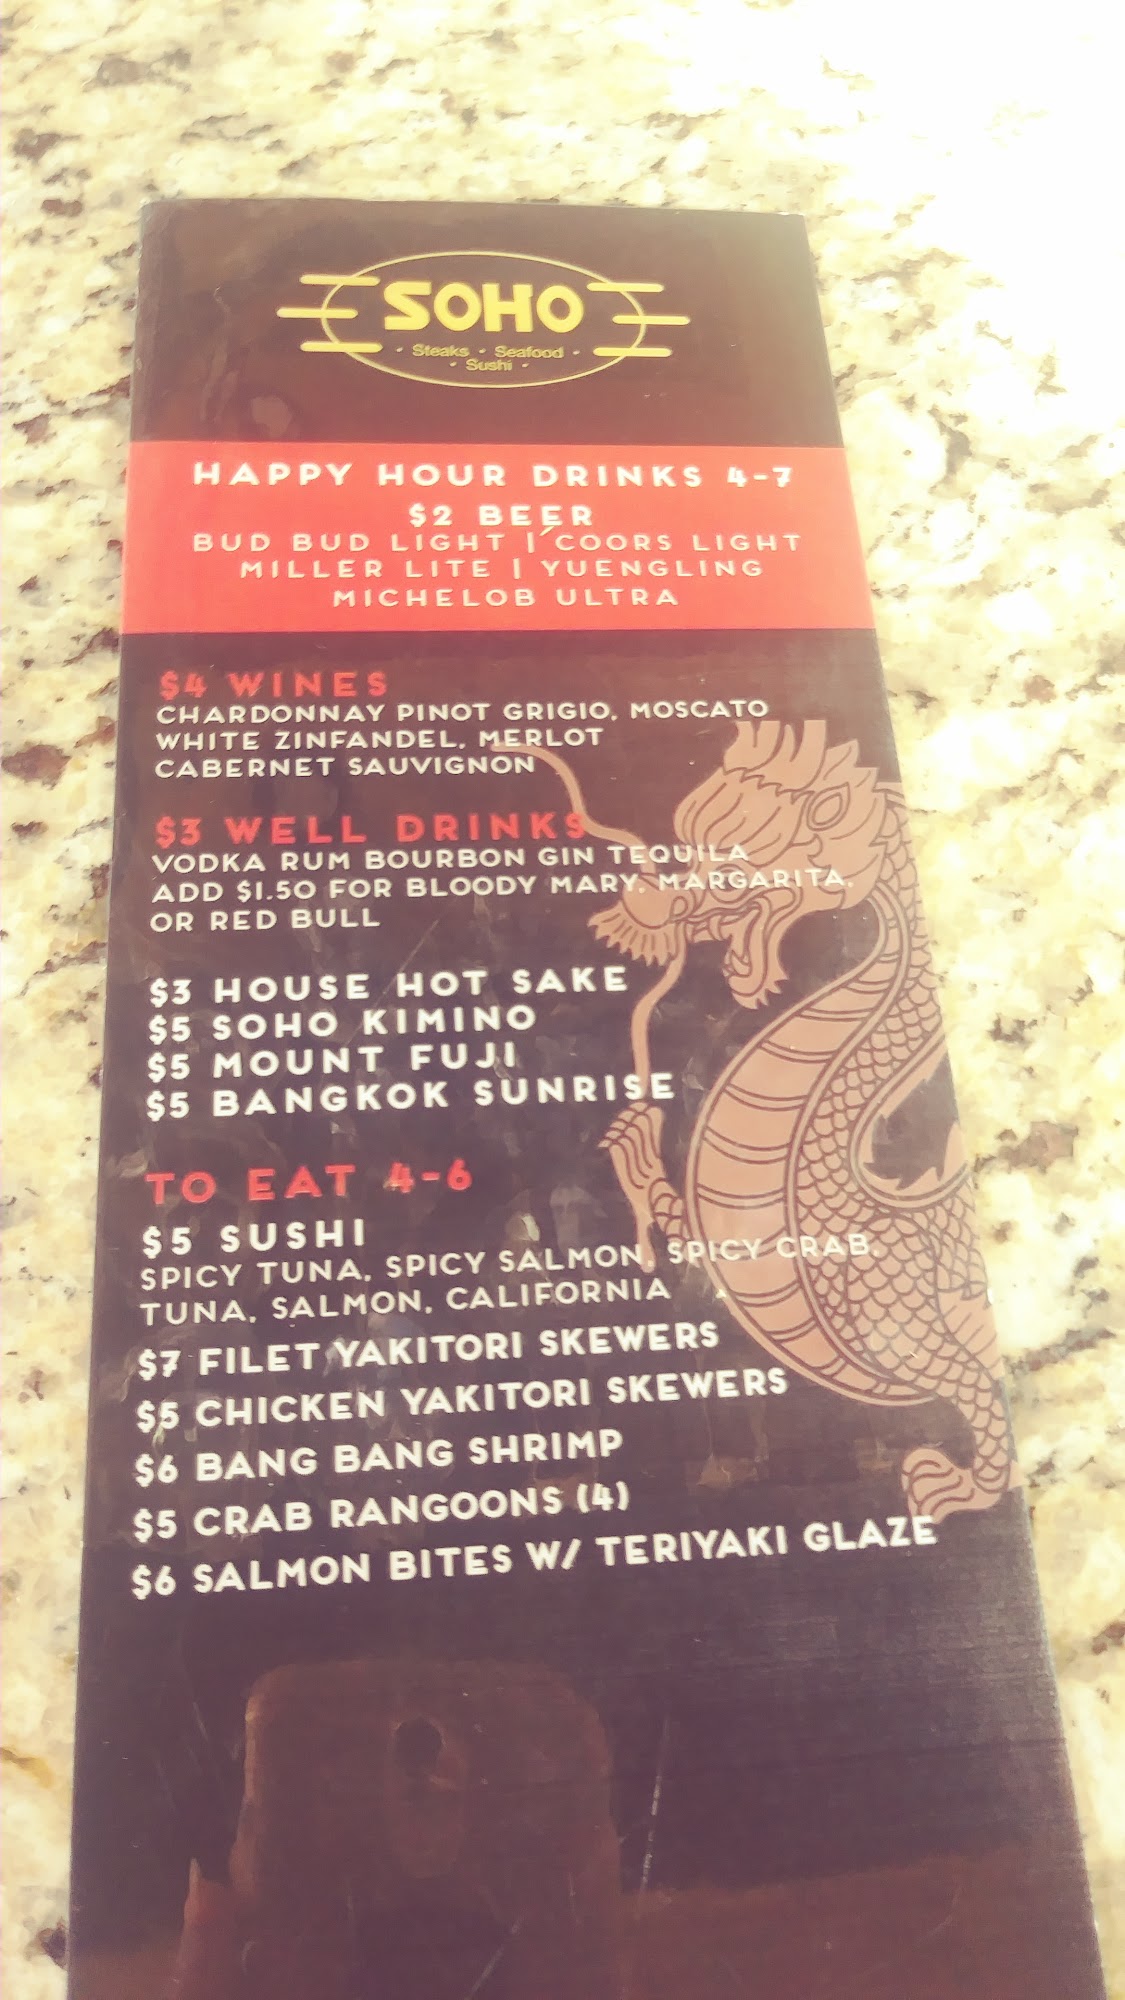 SOHO
· Steaks · Seafood ·
· Sushi ·
HAPPY HOUR DRINKS 4-7
$2 BEER
BUD BUD LIGHT | COORS LIGHT
MILLER LITE | YUENGLING
MICHELOB ULTRA
$4 WINES
CHARDONNAY PINOT GRIGIO, MOSCATO
WHITE ZINFANDEL, MERLOT
CABERNET SAUVIGNON
$3 WELL DRINKS
VODKA RUM BOURBON GIN TEQUILA
ADD $1.50 FOR BLOODY MARY, MARGARITA,
OR RED BULL
$3 HOUSE HOT SAKE
$5 SOHO KIMINO
$5 MOUNT FUJI
$5 BANGKOK SUNRISE
TO EAT 4-6
$5 SUSHI
SPICY TUNA, SPICY SALMON, SPICY CRAB,
TUNA, SALMON, CALIFORNIA
$7 FILET YAKITORI SKEWERS
$5 CHICKEN YAKITORI SKEWERS
$6 BANG BANG SHRIMP
$5 CRAB RANGOONS (4)
$6 SALMON BITES W/ TERIYAKI GLAZE